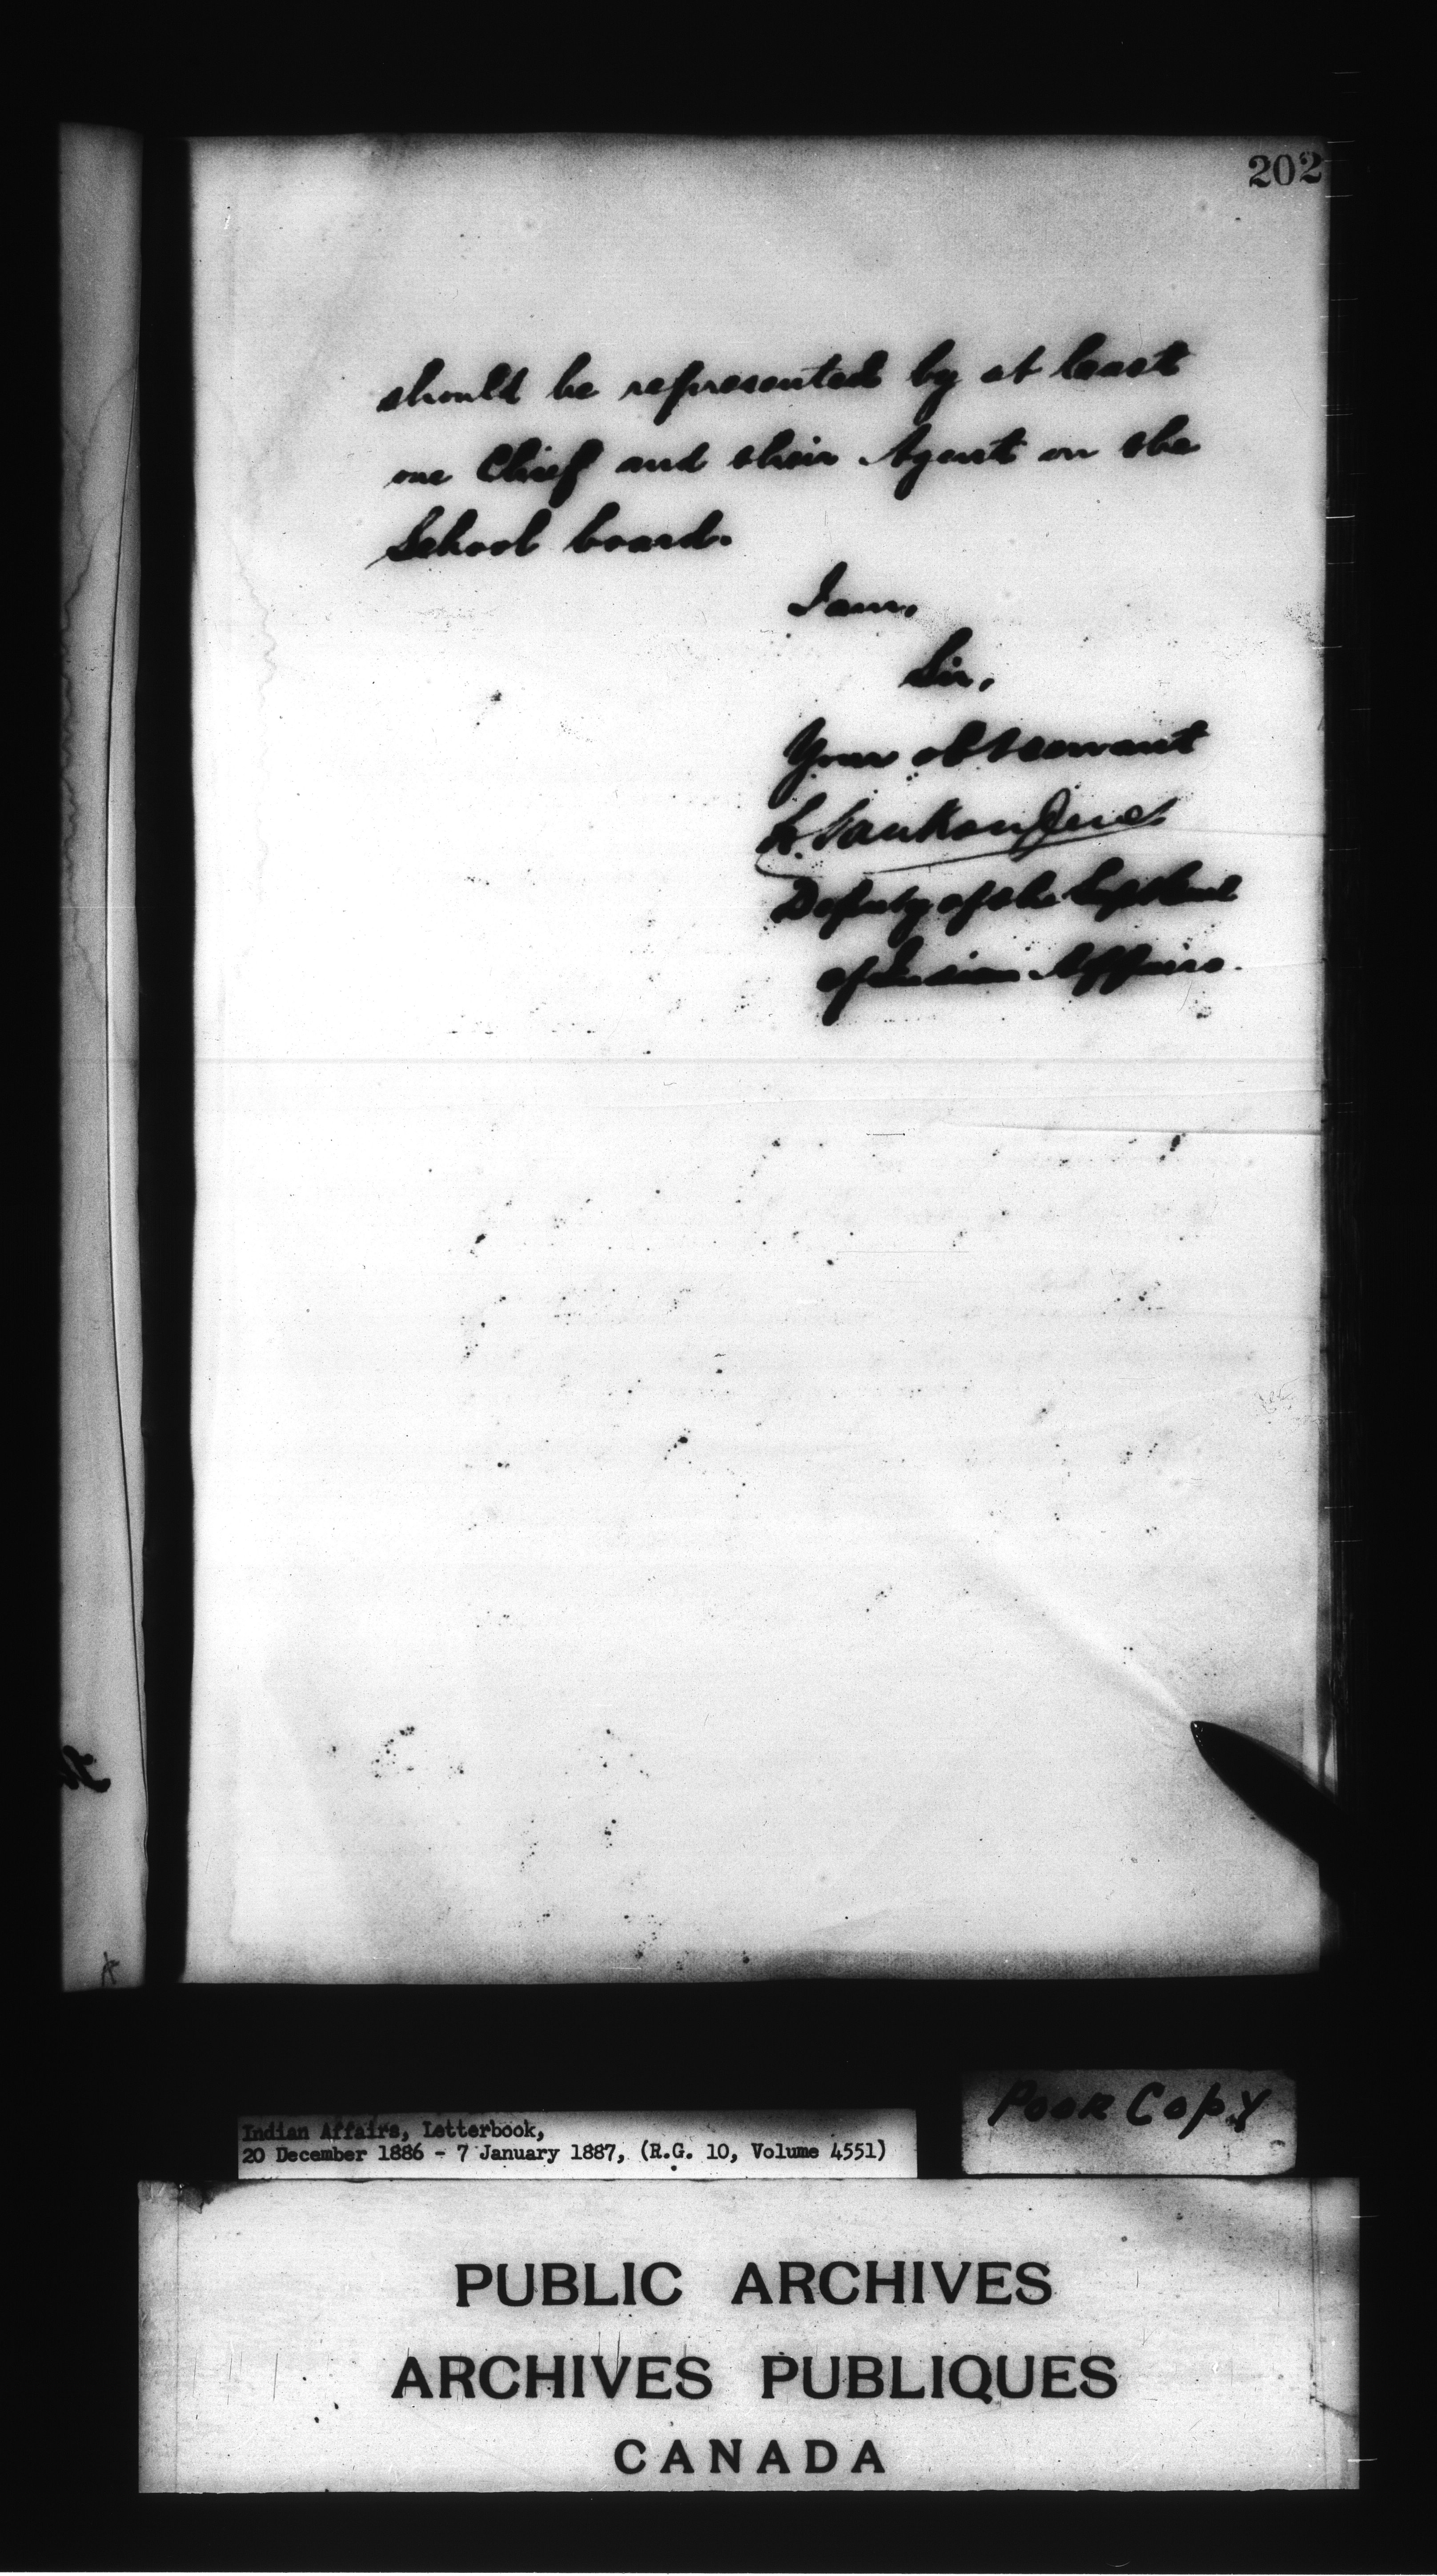 202
should be represented by at least
one Chief and their Agent on the
School board.
I am,
Sir,
Your obt servant
L. VanKoughnet
Deputy of the Supt Genl
of Indian Affairs.
Poor Copy
Indian Affairs, Letterbook,
20 December 1886 - 7 January 1887, (R.G. 10, Volume 4551)
PUBLIC ARCHIVES
ARCHIVES PUBLIQUES
CANADA